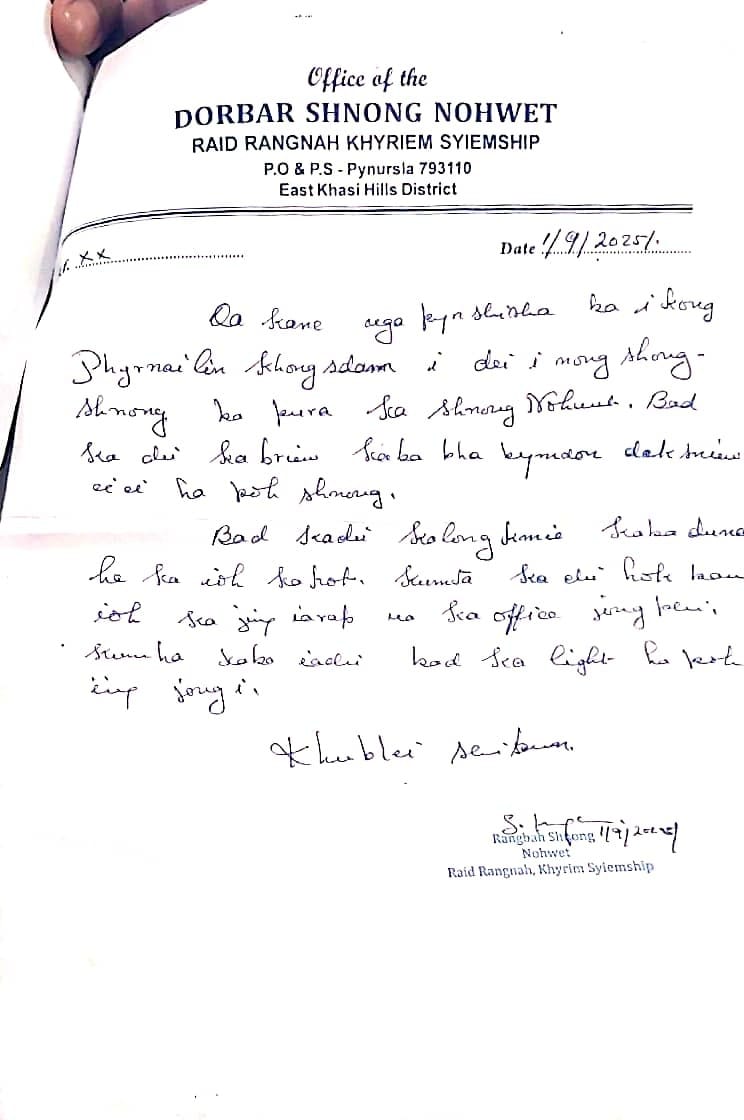 Office of the
DORBAR SHNONG NOHWET
RAID RANGNAH KHYRIEM SYIEMSHIP
P.O & P.S - Pynursla 793110
East Khasi Hills District
xx
Date 1/9/2025/.
Da kane nga kyn shisha ba i kong
Phyrnailin Khongsdam i dei i nong shong-
shnong ba pura ka shnong Nohwet. Bad
ka dei ka briew kaba bha bymdon daksniew
ei ei ha poh shnong.
Bad kadei kalong kmie kaba duna
he ka ioh kahot. Kumta ka dei hok ban
ioh ka jing iarap na ka office jong phi,
kumha kaba iadei bad ka light ha poh
iing jong i.
Khublei
Rangbah Shnong 1/9/2025/
Nohwet
Raid Rangnah, Khyrim Syiemship